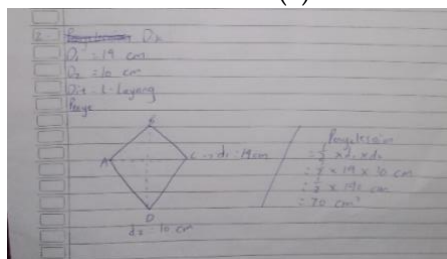 2. Dik
D₁ = 14 cm
D₂ = 10 cm
Dit = L-Layang
Penye
B
A
C → d₁ = 14 cm
D
d₂ = 10 cm
Penyelesaian
= ½ × d₁ × d₂
= ½ × 14 × 10 cm
= ½ × 140 cm
= 70 cm²